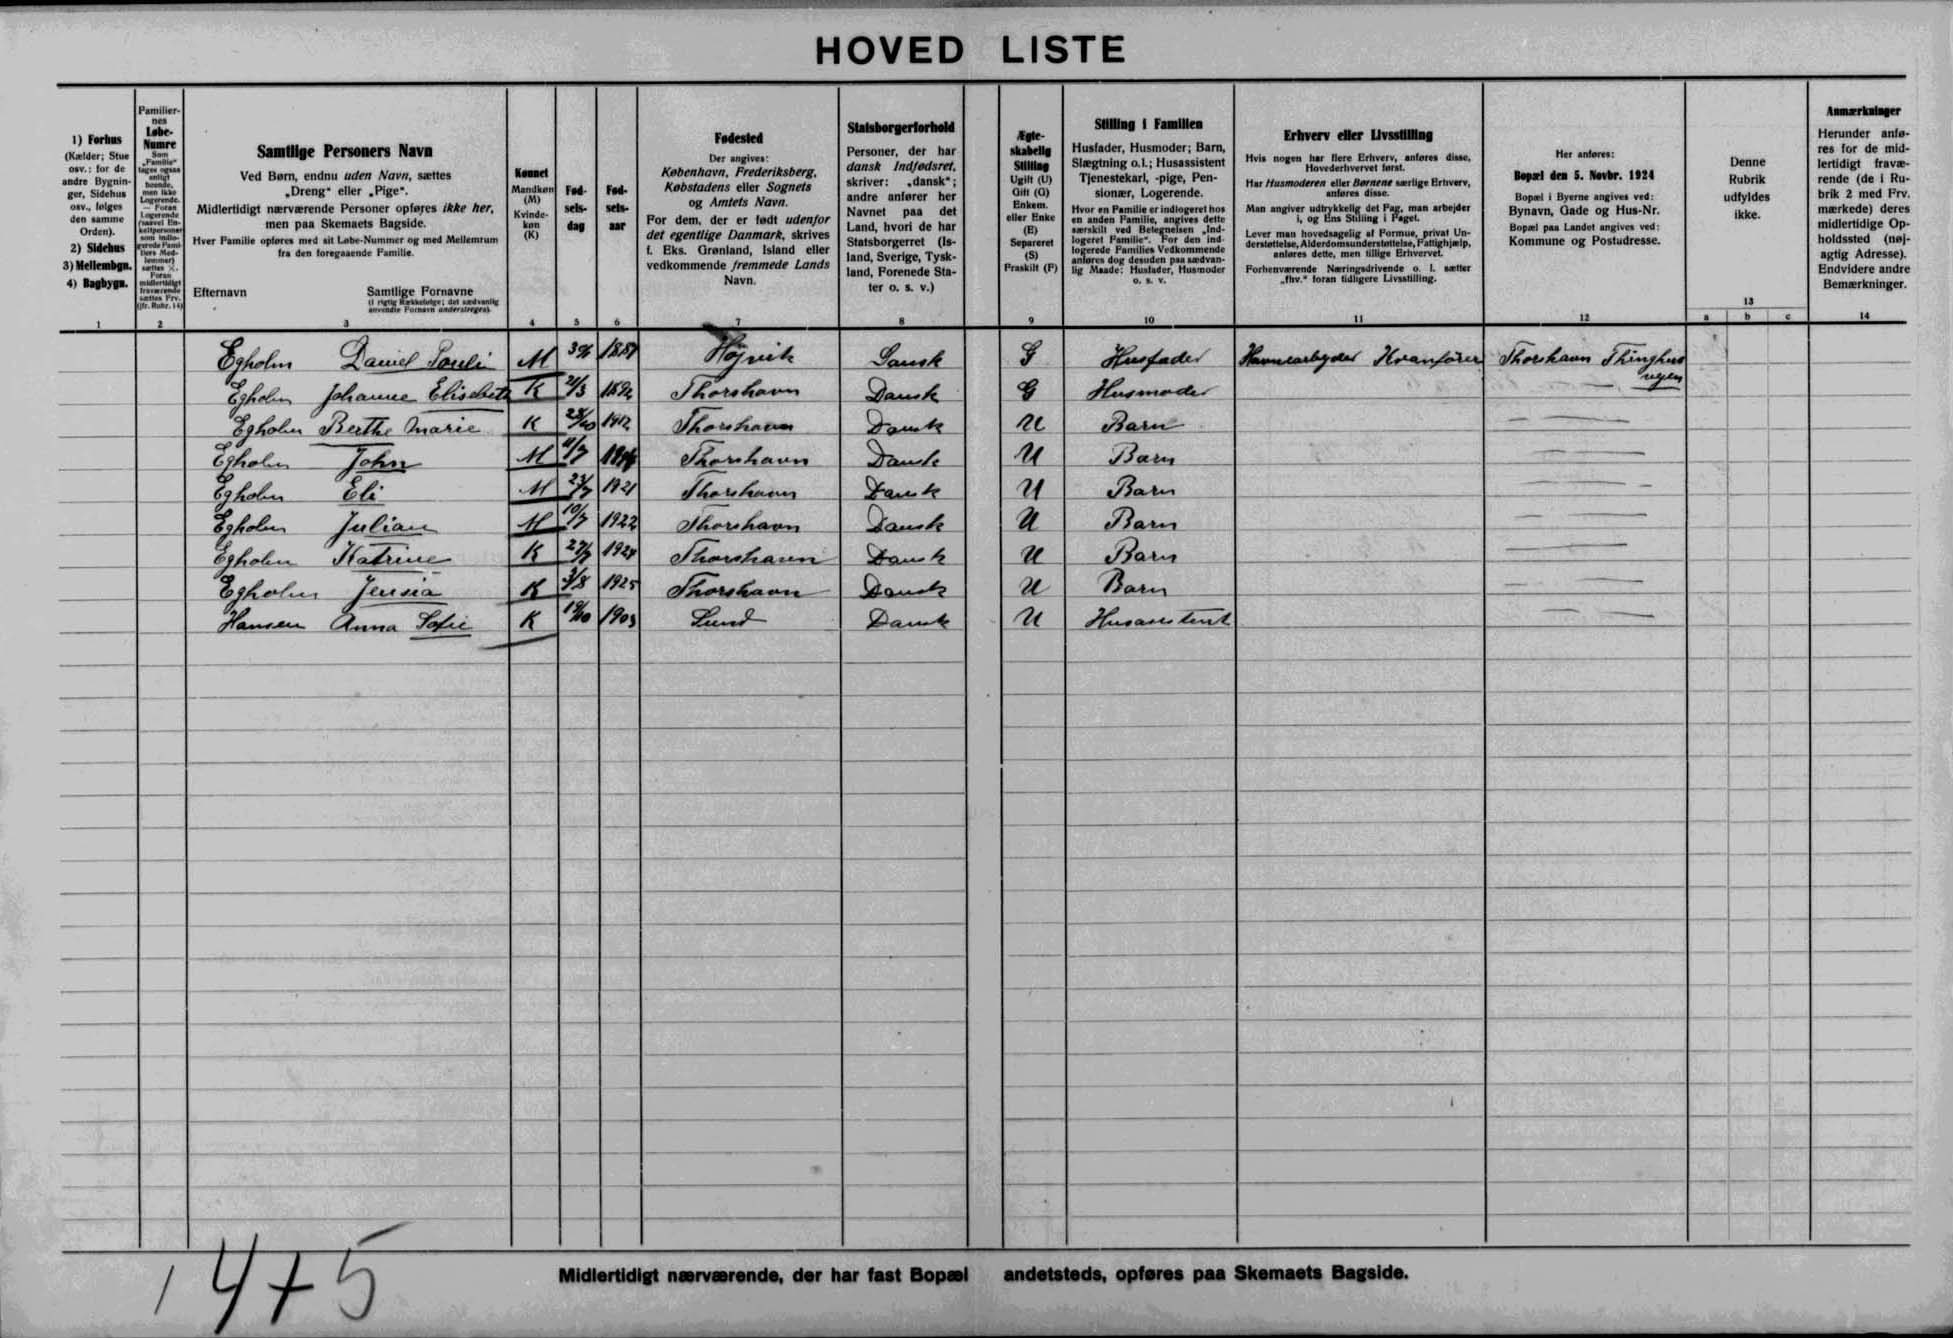 HOVED LISTE
1) Forhus
(Kælder; Stue
osv.: for de
andre Bygnin-
ger, Sidehus
osv., følges
den samme
Orden).
2) Sidehus
3) Mellembgn.
4) Bagbygn.
1
Familier-
nes
Løbe-
Numre
Som
„Familie“
tages ogsaa
enligt
boende,
men ikke
Logerende.
— Foran
Logerende
(saavel En-
keltpersoner
som indlo-
gerede Fami-
liers Med-
lemmer)
sættes
Foran
midlertidigt
fraværende
sættes Frv.
(jfr. Rubr. 14)
2
Samtlige Personers Navn
Ved Børn, endnu uden Navn, sættes
„Dreng“ eller „Pige“.
Midlertidigt nærværende Personer opføres ikke her,
men paa Skemaets Bagside.
Hver Familie opføres med sit Løbe-Nummer og med Mellemrum
fra den foregaaende Familie.
Efternavn Samtlige Fornavne
(i rigtig Rækkefølge; det sædvanlig
anvendte Fornavn understreges).
3
Kønnet
Mandkøn
(M)
Kvinde-
køn
(K)
4
Fød-
sels-
dag
5
Fød-
sels-
aar
6
Fødested
Der angives:
København, Frederiksberg,
Købstadens eller Sognets
og Amtets Navn.
For dem, der er født udenfor
det egentlige Danmark, skrives
f. Eks. Grønland, Island eller
vedkommende fremmede Lands
Navn.
7
Statsborgerforhold
Personer, der har
dansk Indfødsret,
skriver: „dansk“;
andre anfører her
Navnet paa det
Land, hvori de har
Statsborgerret (Is-
land, Sverige, Tysk-
land, Forenede Sta-
ter o. s. v.)
8
Ægte-
skabelig
Stilling
Ugift (U)
Gift (G)
Enkem.
eller Enke
(E)
Separeret
(S)
Fraskilt (F)
9
Stilling i Familien
Husfader, Husmoder; Barn,
Slægtning o.l.; Husassistent
Tjenestekarl, -pige, Pen-
sionær, Logerende.
Hvor en Familie er indlogeret hos
en anden Familie, angives dette
særskilt ved Betegnelsen „Ind-
logeret Familie“. For den ind-
logerede Families Vedkommende
anføres dog desuden paa sædvan-
lig Maade: Husfader, Husmoder
o. s. v.
10
Erhverv eller Livsstilling
Hvis nogen har flere Erhverv, anføres disse,
Hovederhvervet først.
Har Husmoderen eller Børnene særlige Erhverv,
anføres disse.
Man angiver udtrykkelig det Fag, man arbejder
i, og Ens Stilling i Faget.
Lever man hovedsagelig af Formue, privat Un-
derstøttelse, Alderdomsunderstøttelse, Fattighjælp,
anføres dette, men tillige Erhvervet.
Forhenværende Næringsdrivende o. l. sætter
„fhv.“ foran tidligere Livsstilling.
11
Her anføres:
Bopæl den 5. Novbr. 1924
Bopæl i Byerne angives ved:
Bynavn, Gade og Hus-Nr.
Bopæl paa Landet angives ved:
Kommune og Postudresse.
12
Denne
Rubrik
udfyldes
ikke.
13
a b c
Anmærkninger
Herunder anfø-
res for de mid-
lertidigt fravæ-
rende (de i Ru-
brik 2 med Frv.
mærkede) deres
midlertidige Op-
holdssted (nøj-
agtig Adresse).
Endvidere andre
Bemærkninger.
14
Egholm Daniel Pauli M Højvik Dansk G Husfader Havnearbejder Kranfører Thorshavn Thinghus
vejen
Egholm Johanne Elisabeth K 21/3 1892 Thorshavn Dansk G Husmoder — —
Egholm Berthe Marie K 1912 Thorshavn Dansk U Barn — —
Egholm John M 11/7 Thorshavn Dansk U Barn — —
Egholm Eli M 1921 Thorshavn Dansk U Barn — —
Egholm Julian M 10/7 1922 Thorshavn Dansk U Barn — —
Egholm Katrine K 1924 Thorshavn Dansk U Barn — —
Egholm Jensia K 3/8 1925 Thorshavn Dansk U Barn — —
Hansen Anna Sofie K 19/10 1903 Lund Dansk U Husassistent — —
Midlertidigt nærværende, der har fast Bopæl andetsteds, opføres paa Skemaets Bagside.
4+5